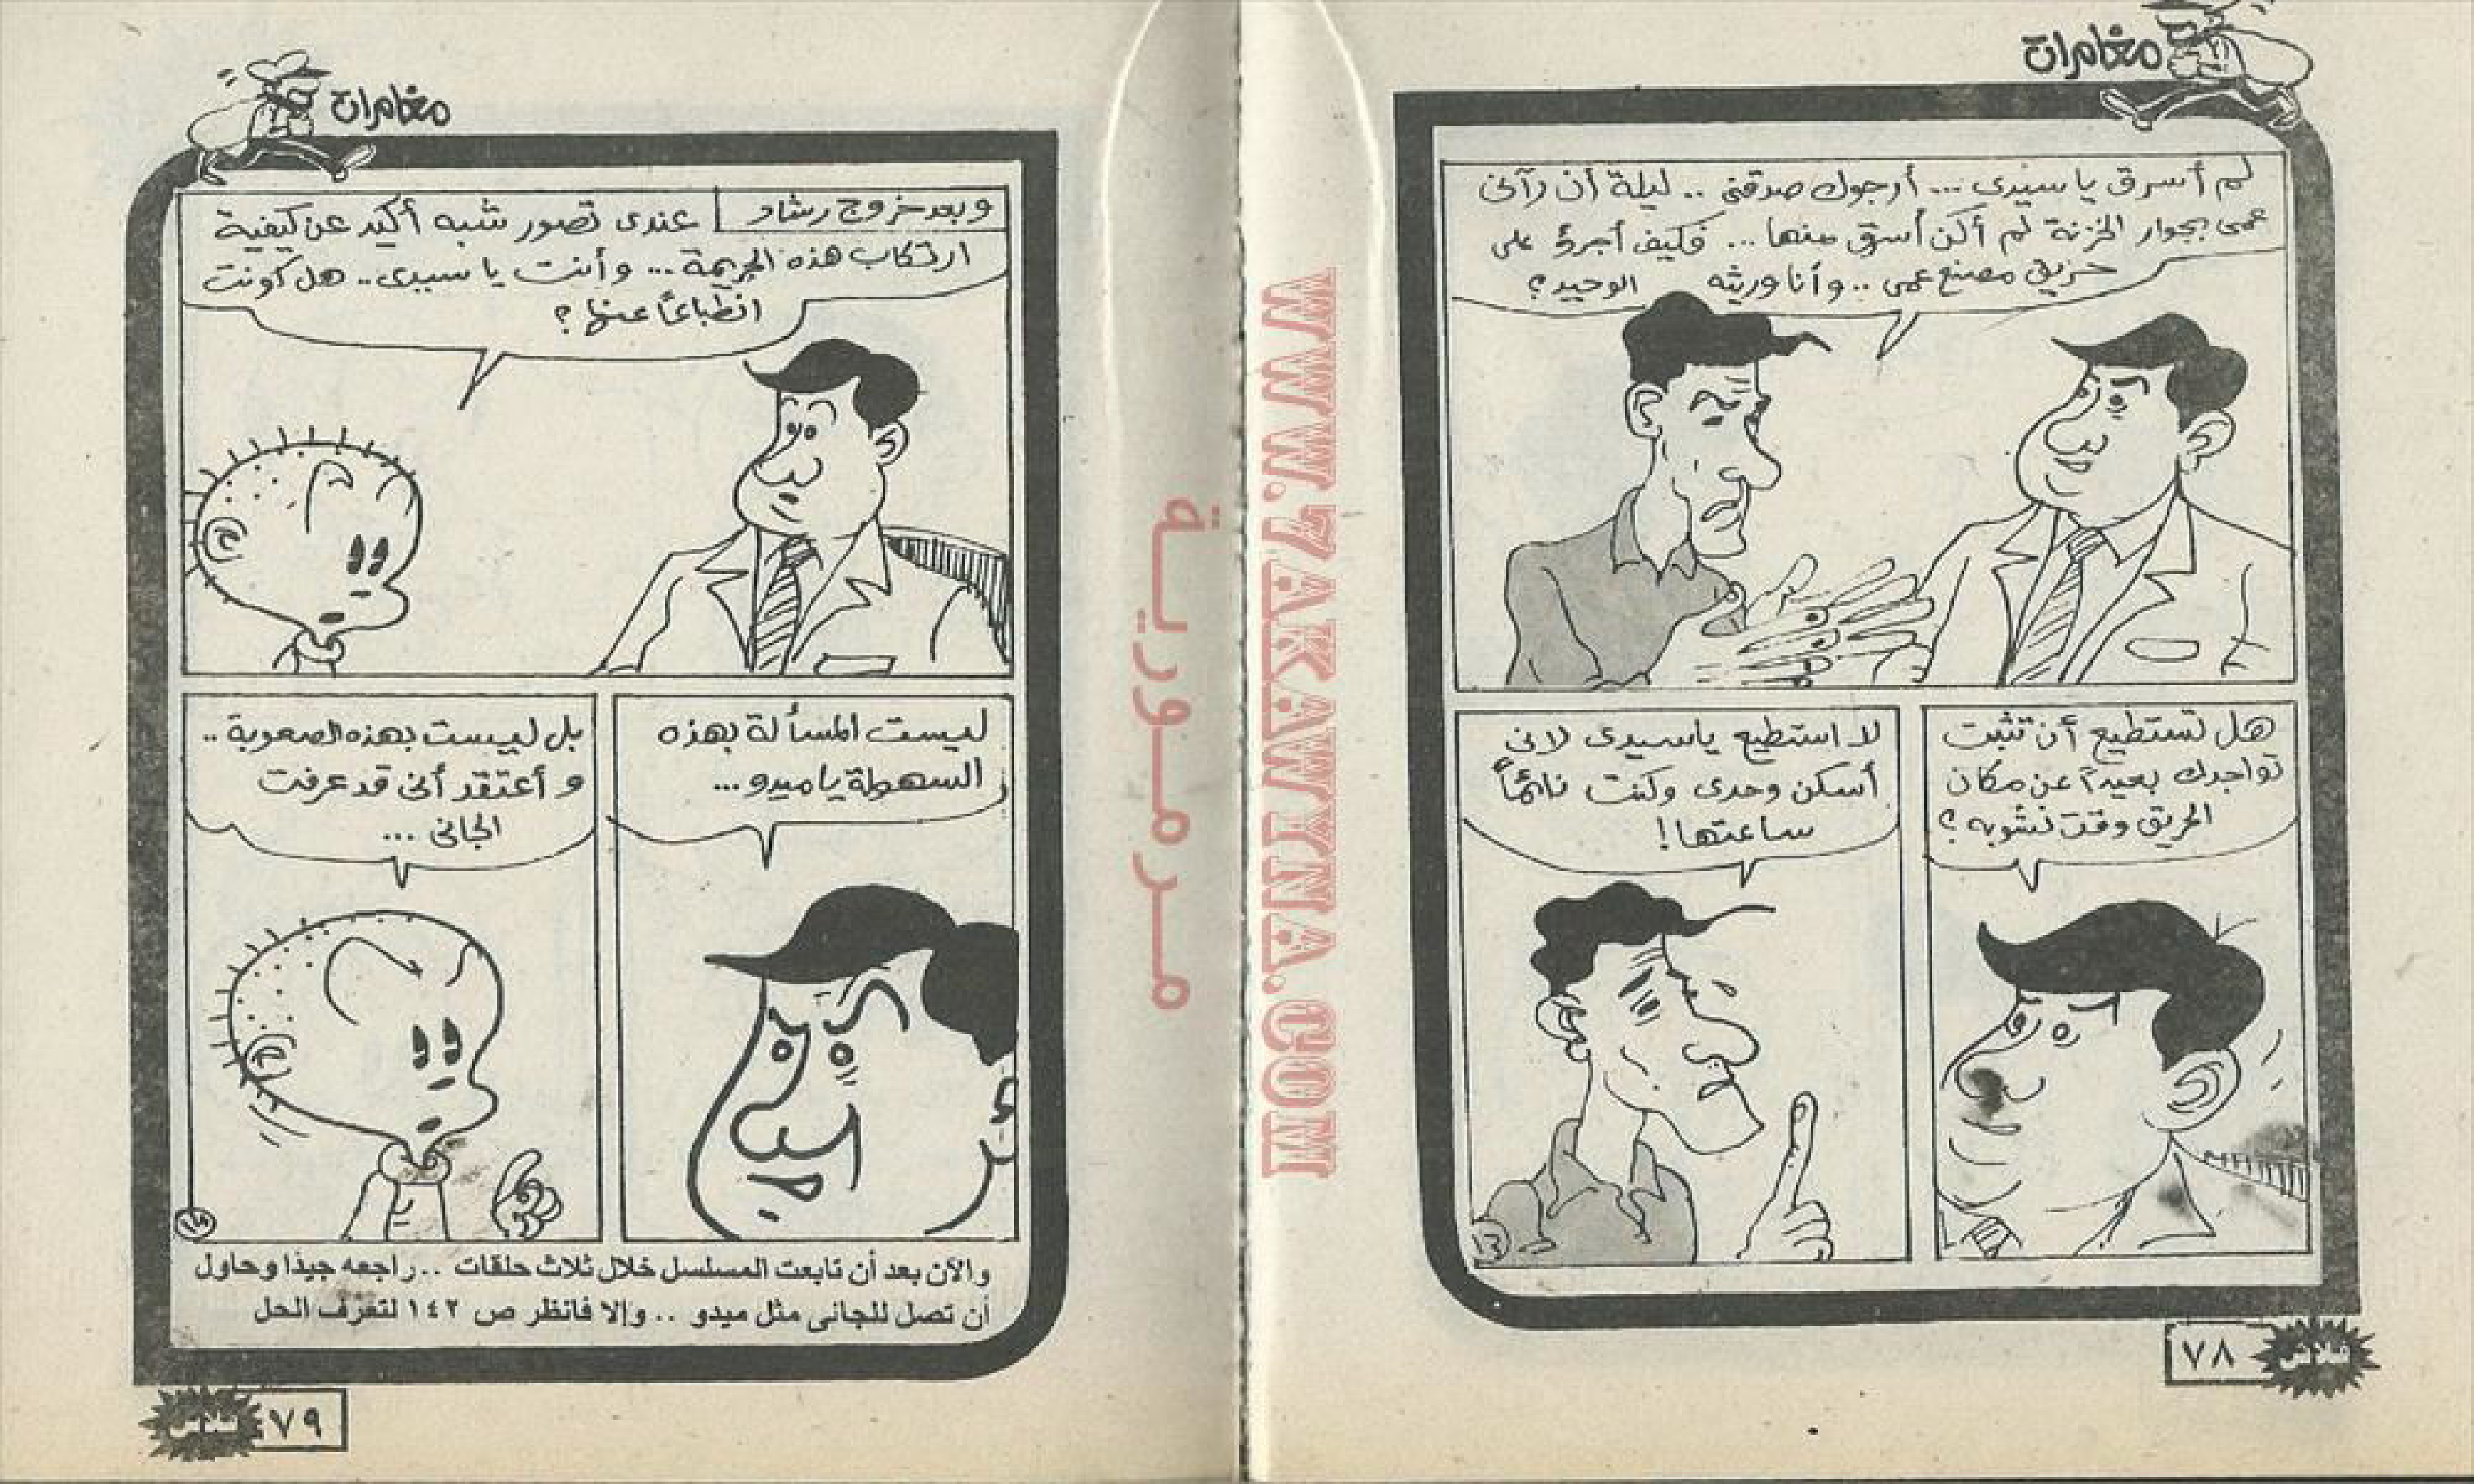 مغامرات
لم أسرق يا سيدى ... أرجوك صدقنى .. ليلة أن رآنى
عمى بجوار الخزنة لم أكن أسرق منها ... فكيف أجرؤ على
حريق مصنع عمى .. وأنا وريثه الوحيد؟
هل تستطيع أن تثبت
تواجدك بعيداً عن مكان
الحريق وقت نشوبه؟
لا استطيع ياسيدى لانى
أسكن وحدى وكنت نائماً
ساعتها!
١٣
٧٨
فلاش
مغامرات
وبعد خروج رشاد
عندى تصور شبه أكيد عن كيفية
ارتكاب هذه الجريمة ... وأنت يا سيدى .. هل كونت
انطباعاً عنها؟
ليست المسألة بهذه
السهولة ياميدو ...
بل ليست بهذه الصعوبة ..
و أعتقد أنى قد عرفت
الجانى ...
والآن بعد أن تابعت المسلسل خلال ثلاث حلقات .. راجعه جيدا وحاول
أن تصل للجانى مثل ميدو .. وإلا فانظر ص ١٤٢ لتعرف الحل
٧٩
مرمورية
WWW.ZAKAWINNA.COM